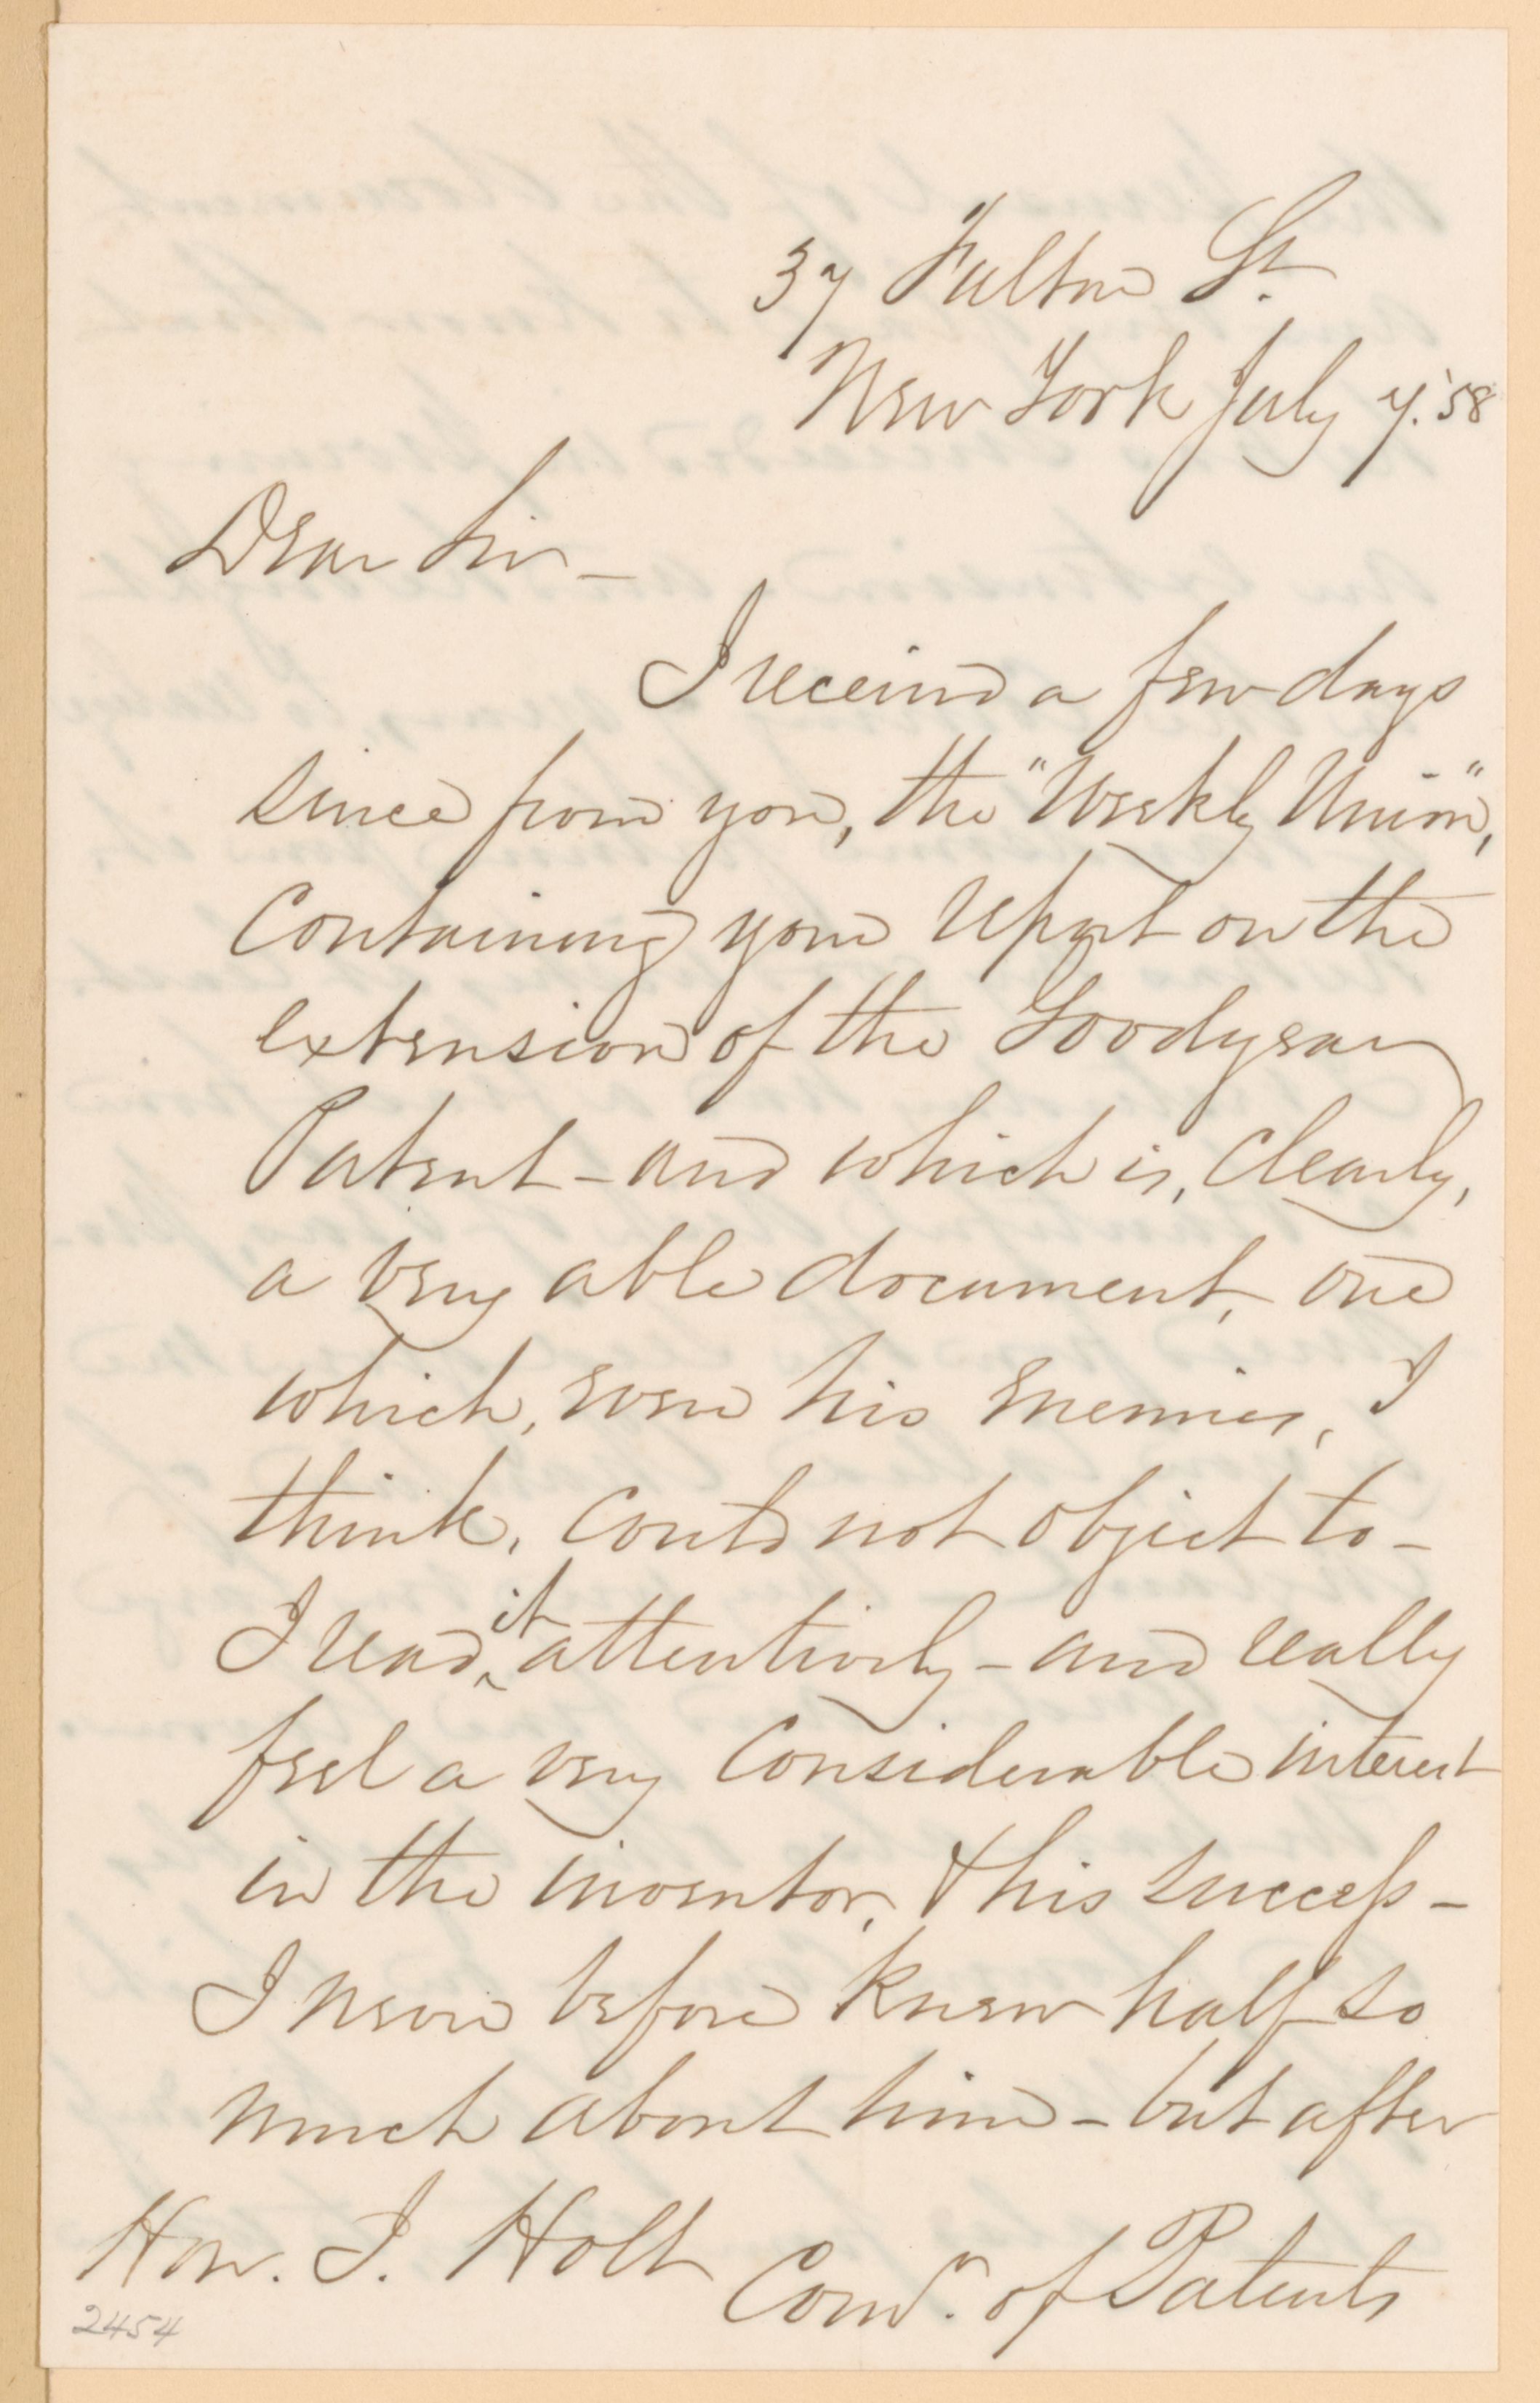 37 Fulton St.
New York July 7. '58
Dear Sir –
I received a few days
since from you, the "Weekly Union",
Containing your report on the
extension of the Goodyear
Patent – and which is, Clearly,
a very able document, one
which, even his enemies, I
think, could not object to –
I read it attentively – and really
feel a very Considerable interest
in the inventor, & his success –
I never before knew half so
much about him – but after
Hon. J. Holt
Comr. of Patents
2454